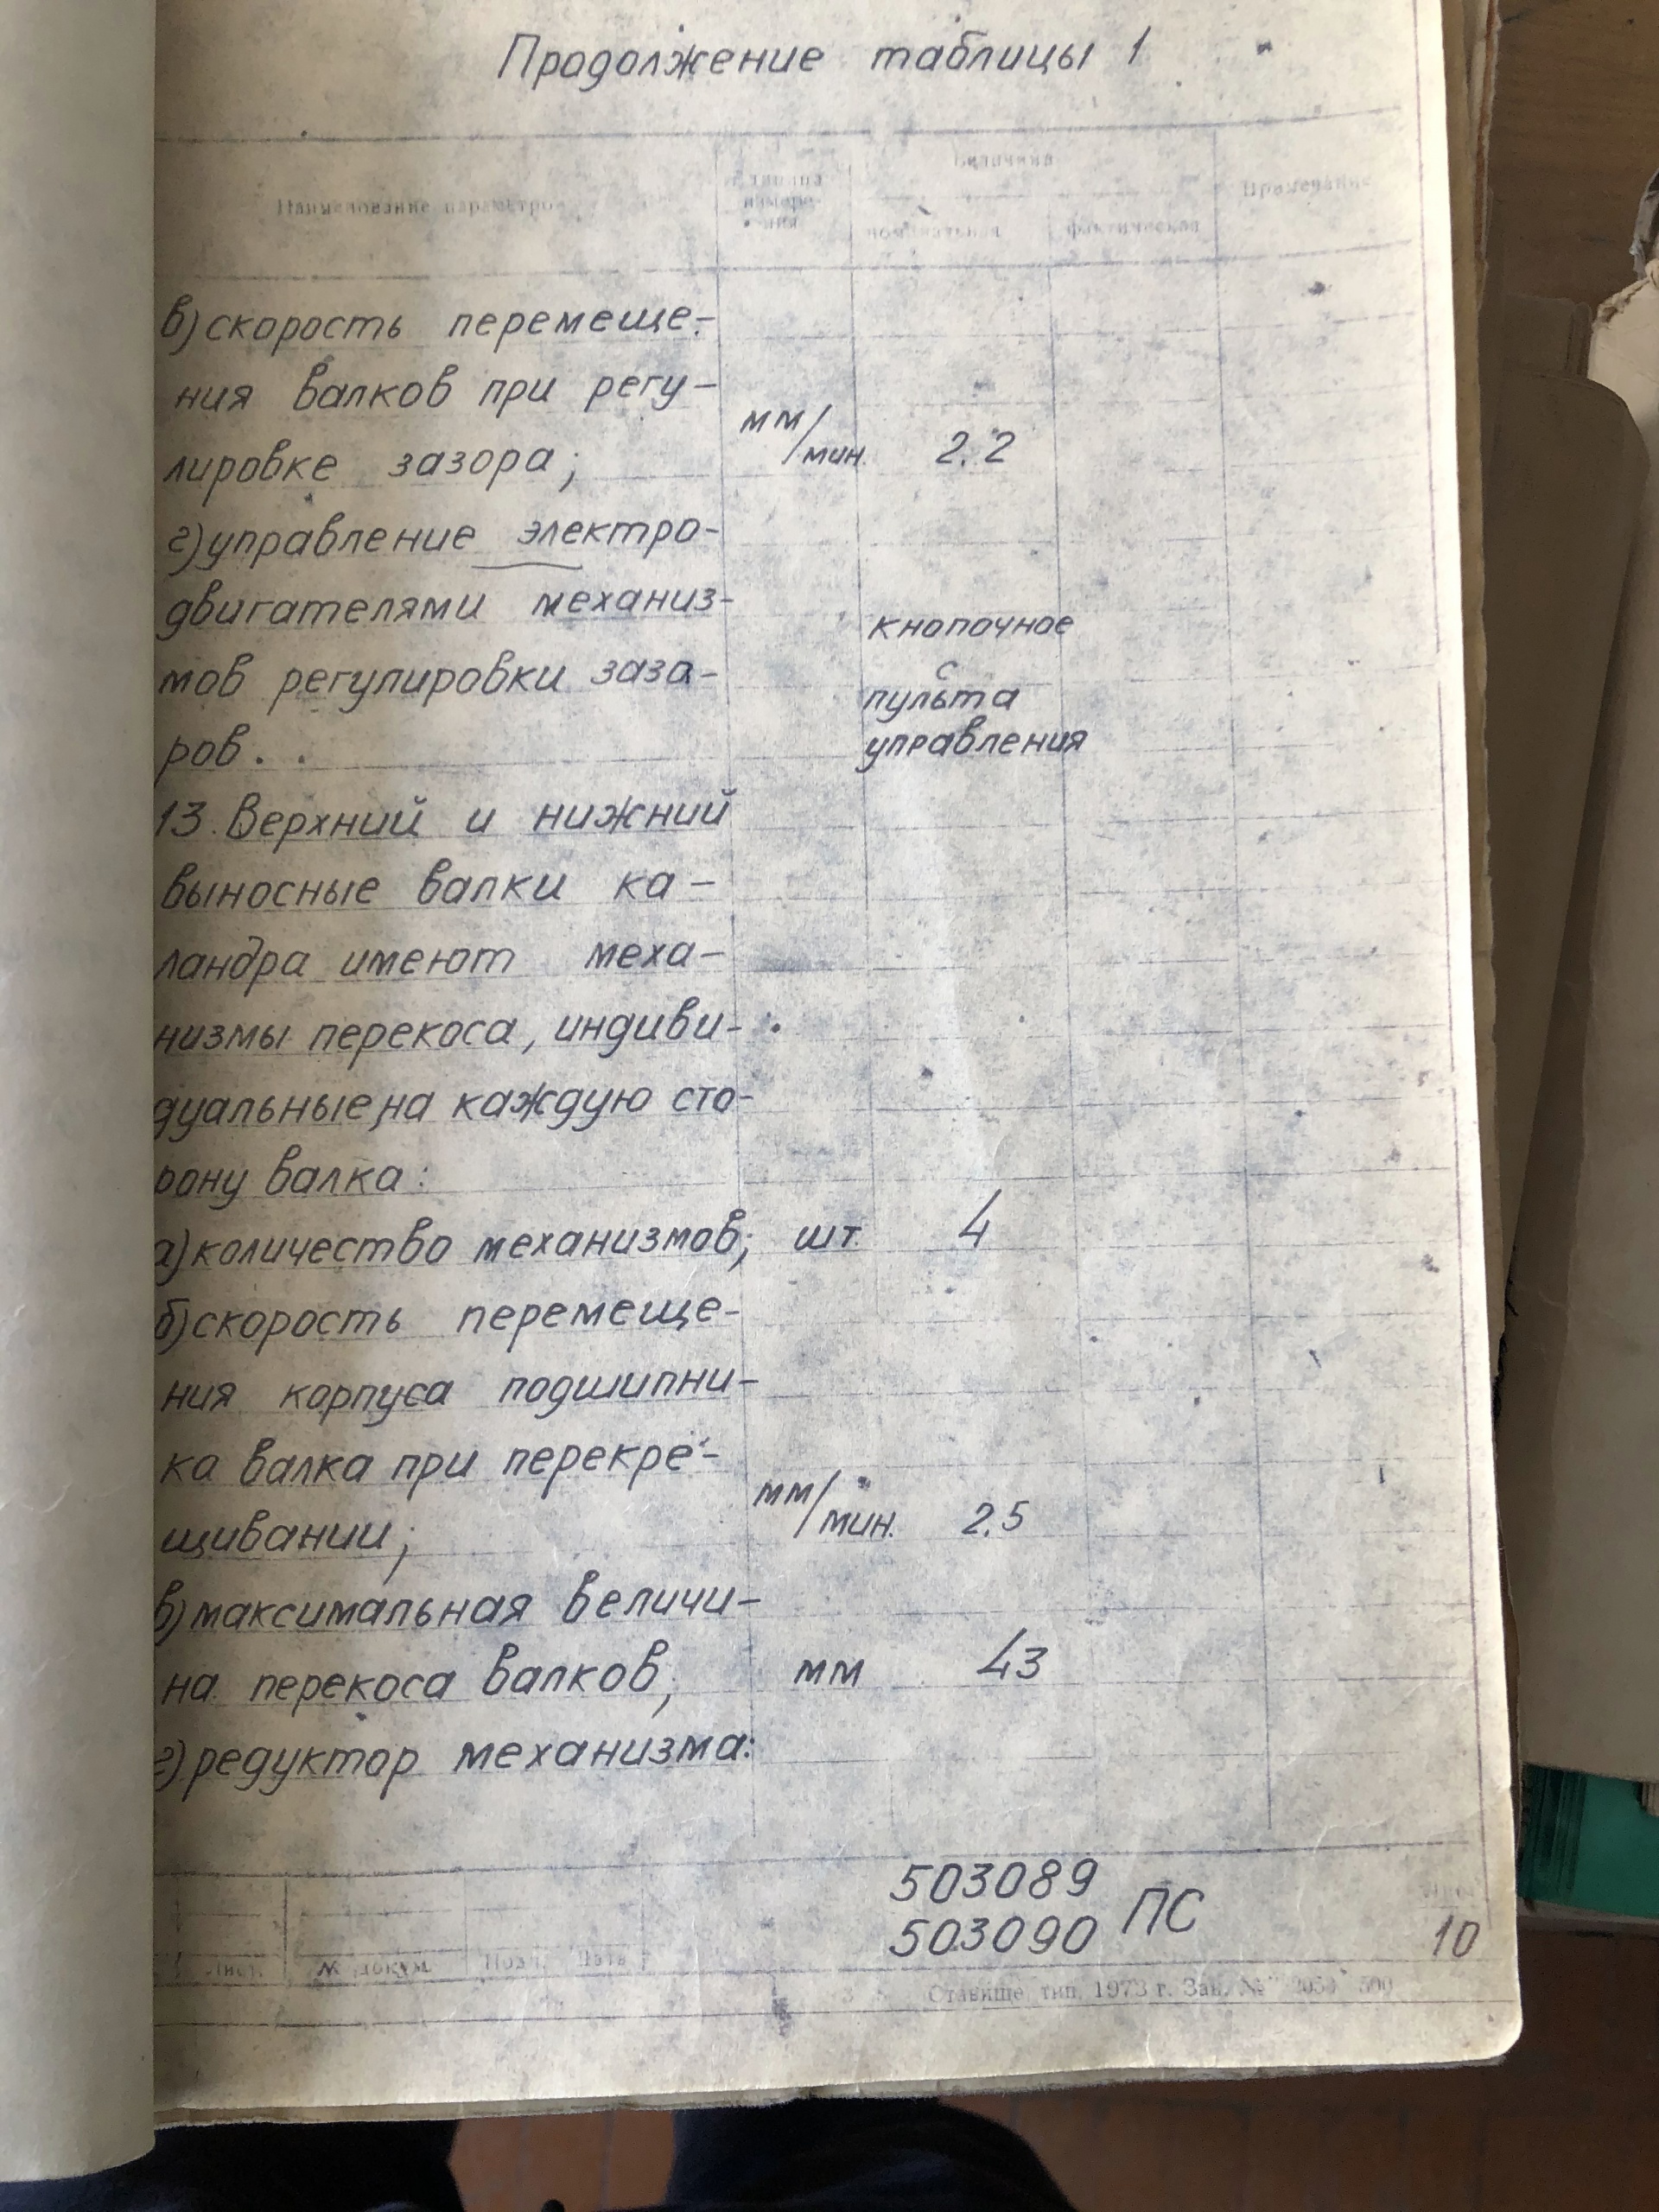 Продолжение таблицы 1
Наименование параметров
Единица измере-
ния
Величина
номинальная
фактическая
Примечание
в) скорость перемеще-
ния валков при регу-
лировке зазора;
мм/мин.
2.2
г) управление электро-
двигателями механиз-
мов регулировки заза-
ров.
кнопочное
с
пульта
управления
13. Верхний и нижний
выносные валки ка-
ландра имеют меха-
низмы перекоса, индиви-
дуальные, на каждую сто-
рону валка:
а) количество механизмов; шт. 4
б) скорость перемеще-
ния корпуса подшипни-
ка валка при перекре-
щивании;
мм/мин. 2.5
в) максимальная величи-
на перекоса валков; мм 43
г) редуктор механизма:
503089
503090 ПС
Лист
10
Лист. № докум. Подп. Дата
Ставище, тип. 1973 г. Зак. №